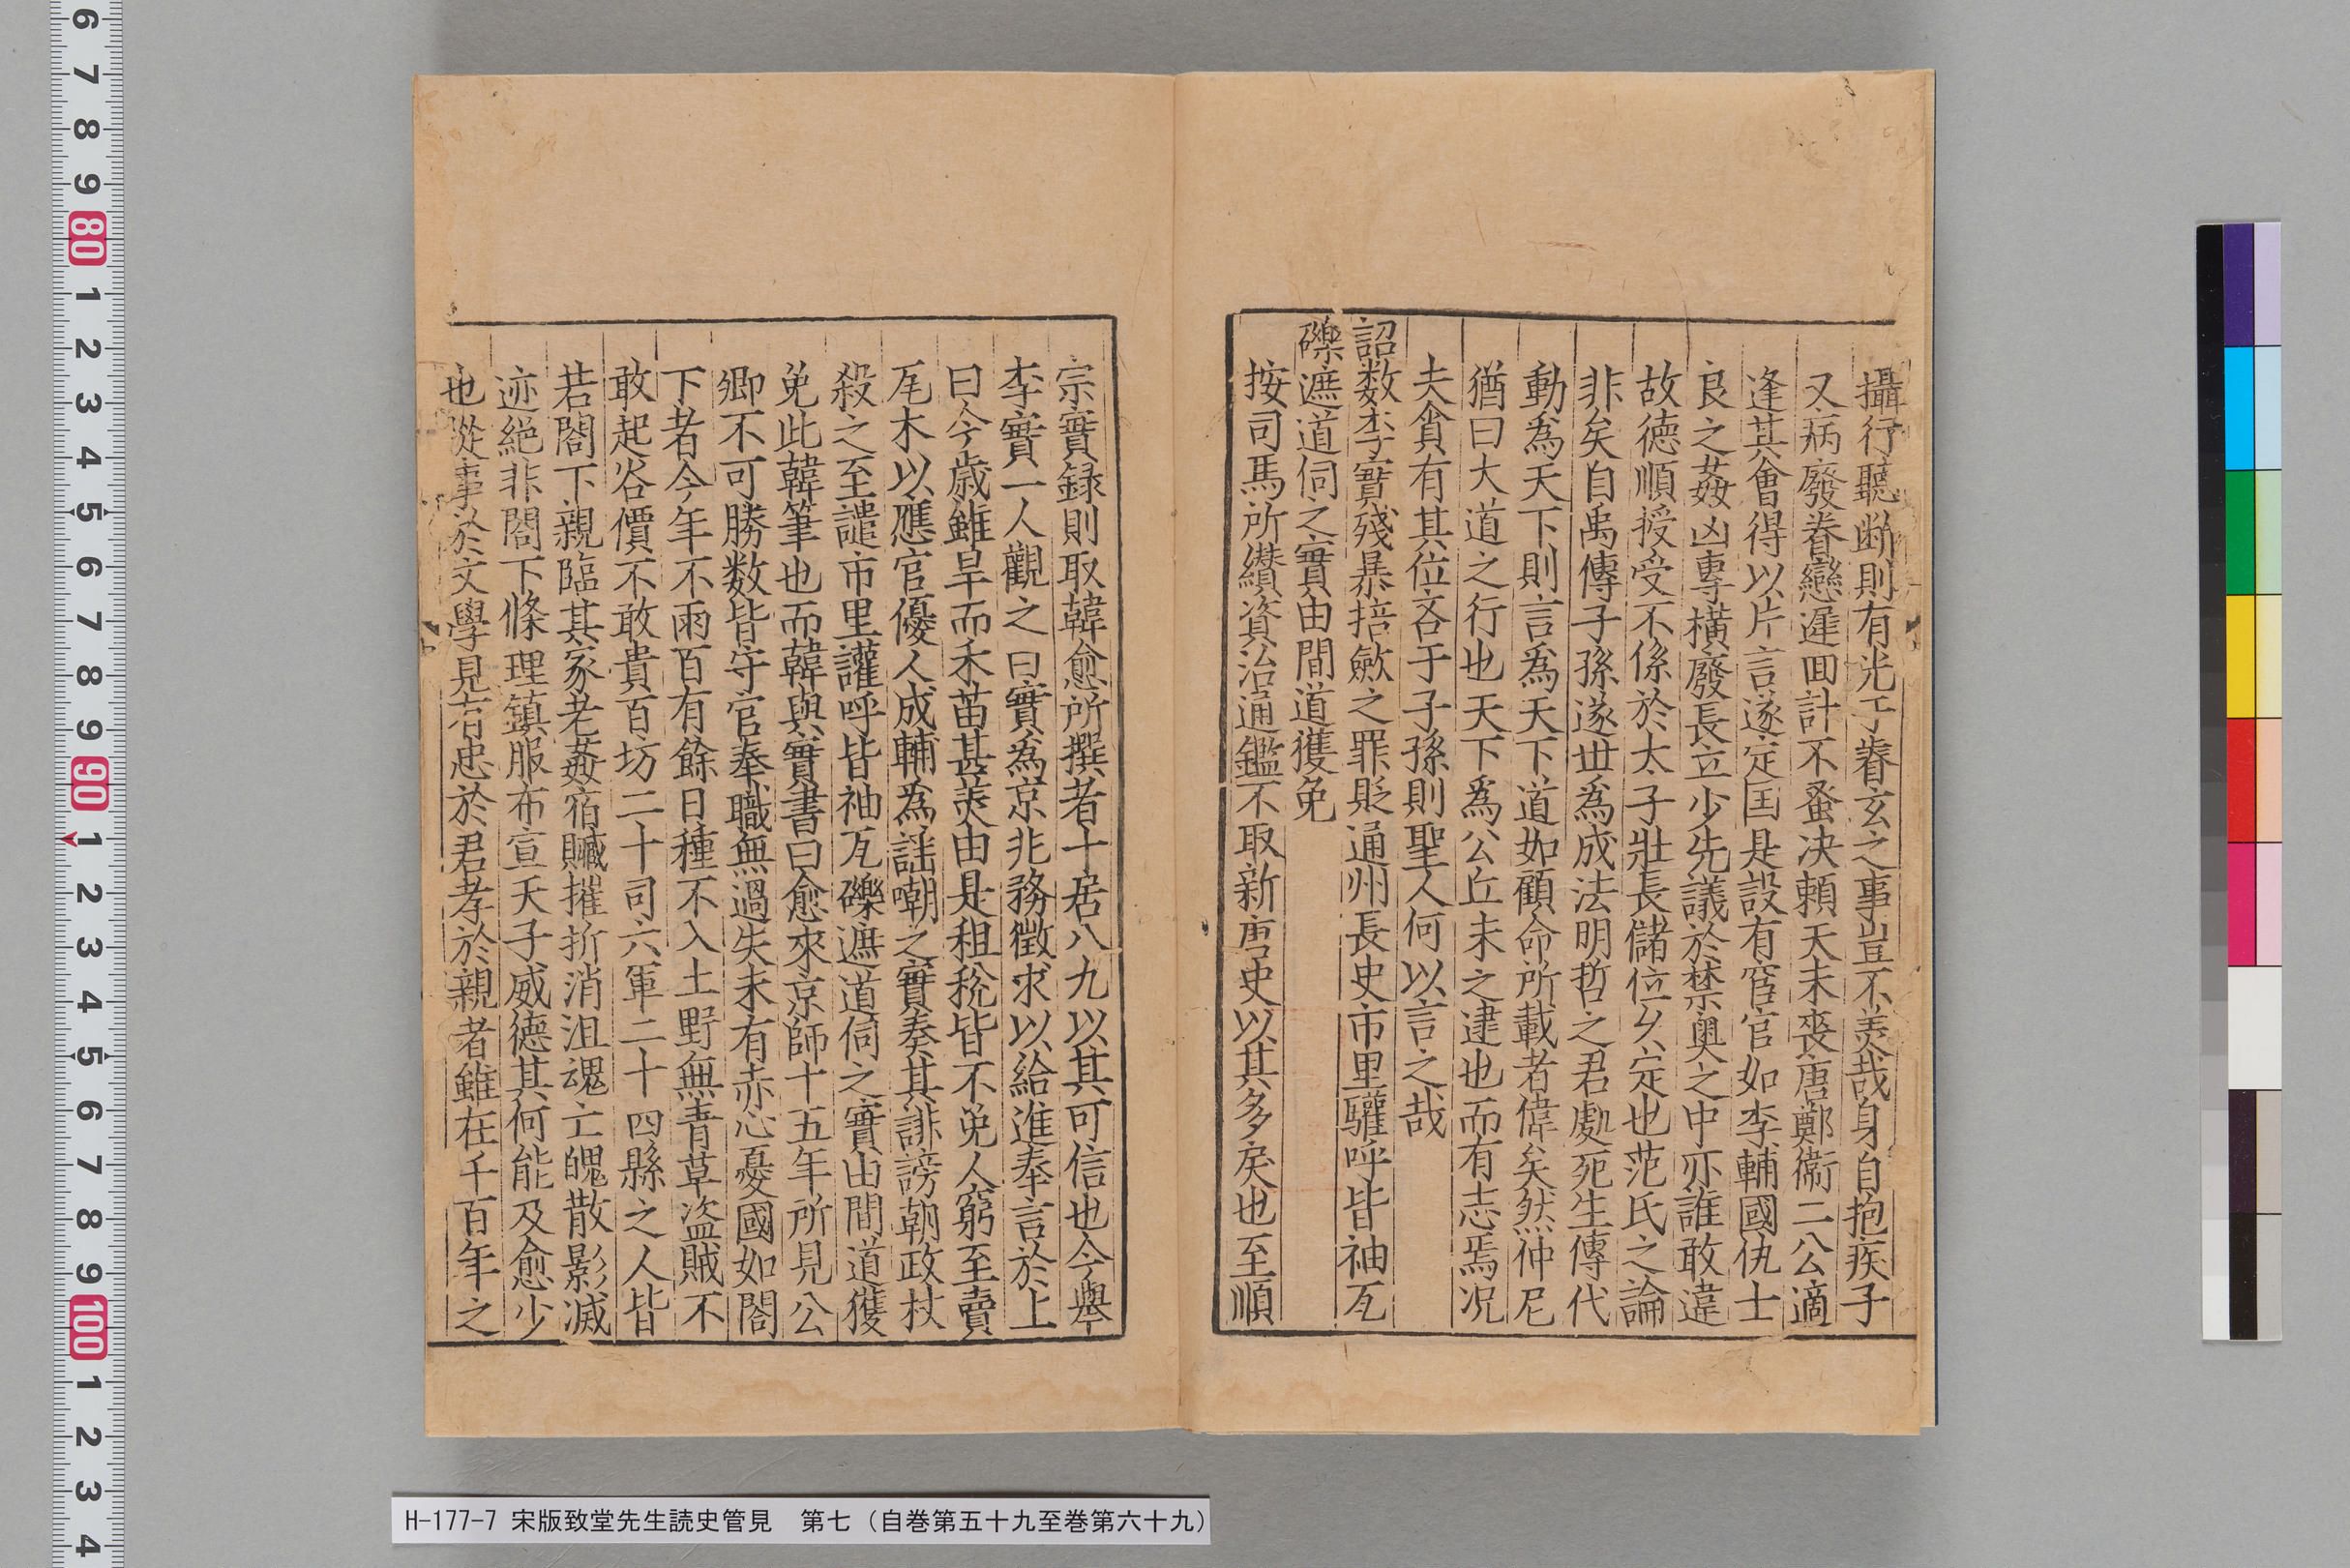 攝行聽断則有光于眷玄之事豈不羙哉身自抱疾子
又病廢眷戀遲囬計不蚤决頼天未喪唐鄭衞二公適
逢其會得以片言遂定囯是設有宦官如李輔國仇士
良之姦凶專橫廢長立少先議於禁奧之中亦誰敢違
故徳順授受不係於太子壯長儲位乆定也范氏之論
非矣自禹傳子孫遂世為成法明哲之君處死生傳代
動為天下則言為天下道如顧命所載者偉矣然仲尼
猶曰大道之行也天下爲公丘未之逮也而有志焉况
夫貪有其位吝于子孫則聖人何以言之哉
詔数李實殘暴掊斂之罪貶通州長史市里驩呼皆袖瓦
礫遮道伺之實由間道獲免
按司馬所纉資治通鑑不取新唐史以其多戾也至順
宗實録則取韓愈所撰者十居八九以其可信也今舉
李實一人觀之曰實爲京兆務徵求以給進奉言於上
曰今歳雖旱而禾苗甚羙由是租稅皆不免人窮至賣
尾木以應官優人成輔為謡嘲之實奏其誹謗朝政杖
殺之至譴市里讙呼皆袖瓦礫遮道伺之實由間道獲
免此韓筆也而韓與實書曰愈來京師十五年所見公
卿不可勝数皆守官奉職無過失未有赤心憂國如閤
下者今年不雨百有餘日種不入土野無青草盗賊不
敢起谷價不敢貴百坊二十司六軍二十四縣之人皆
若閤下親臨其家老姦宿贓摧折消沮魂亡魄散影滅
迹絕非閤下條理鎮服布宣天子威德其何能及愈少
也從事於文學見有忠於君孝於親者雖在千百年之
H-177-7 宋版致堂先生読史管見 第七（自巻第五十九至巻第六十九）
6 7 8 9 80 1 2 3 4 5 6 7 8 9 90 1 2 3 4 5 6 7 8 9 100 1 2 3 4